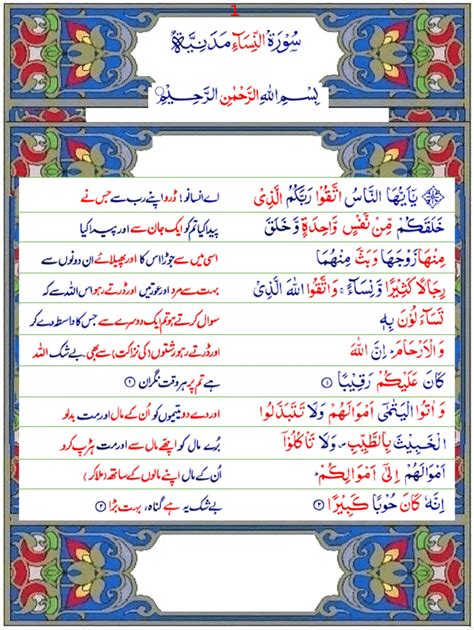 1
سُوْرَةُ النِّسَآءِ مَدَنِيَّةٌ
بِسْمِ اللهِ الرَّحْمٰنِ الرَّحِيْمِ
يٰۤاَيُّهَا النَّاسُ اتَّقُوْا رَبَّكُمُ الَّذِىْ اے انسانو! ڈرو اپنے رب سے جس نے
خَلَقَكُمْ مِّنْ نَّفْسٍ وَّاحِدَةٍ وَّخَلَقَ پیدا کیا تم کو ایک جان سے اور پیدا کیا
مِنْهَا زَوْجَهَا وَبَثَّ مِنْهُمَا اسی میں سے جوڑا اس کا اور پھیلائے ان دونوں سے
رِجَالًا كَثِيْرًا وَّنِسَآءً ۚ وَاتَّقُوا اللهَ الَّذِىْ بہت سے مرد اور عورتیں اور ڈرتے رہو اس اللہ سے کہ
تَسَآءَلُوْنَ بِهٖ سوال کرتے ہو تم ایک دوسرے سے جس کا واسطہ دے کر
وَالْاَرْحَامَ ؕ اِنَّ اللهَ اور ڈرتے رہو رشتوں (کی نزاکت) سے بھی، بے شک اللہ
كَانَ عَلَيْكُمْ رَقِيْبًا ۝۱ ہے تم پر ہر وقت نگران ۝۱
وَاٰتُوا الْيَتٰمٰٓى اَمْوَالَهُمْ وَلَا تَتَبَدَّلُوا اور دے دو یتیموں کو اُن کے مال اور مت بدلو
الْخَبِيْثَ بِالطَّيِّبِ ۪ وَلَا تَاْكُلُوْۤا بُرے مال کو اچھے مال سے اور مت ہڑپ کرو
اَمْوَالَهُمْ اِلٰٓى اَمْوَالِكُمْ ؕ اُن کے مال اپنے مالوں کے ساتھ (ملا کر)
اِنَّهٗ كَانَ حُوْبًا كَبِيْرًا ۝۲ بے شک یہ ہے گناہ، بہت بڑا ۝۲